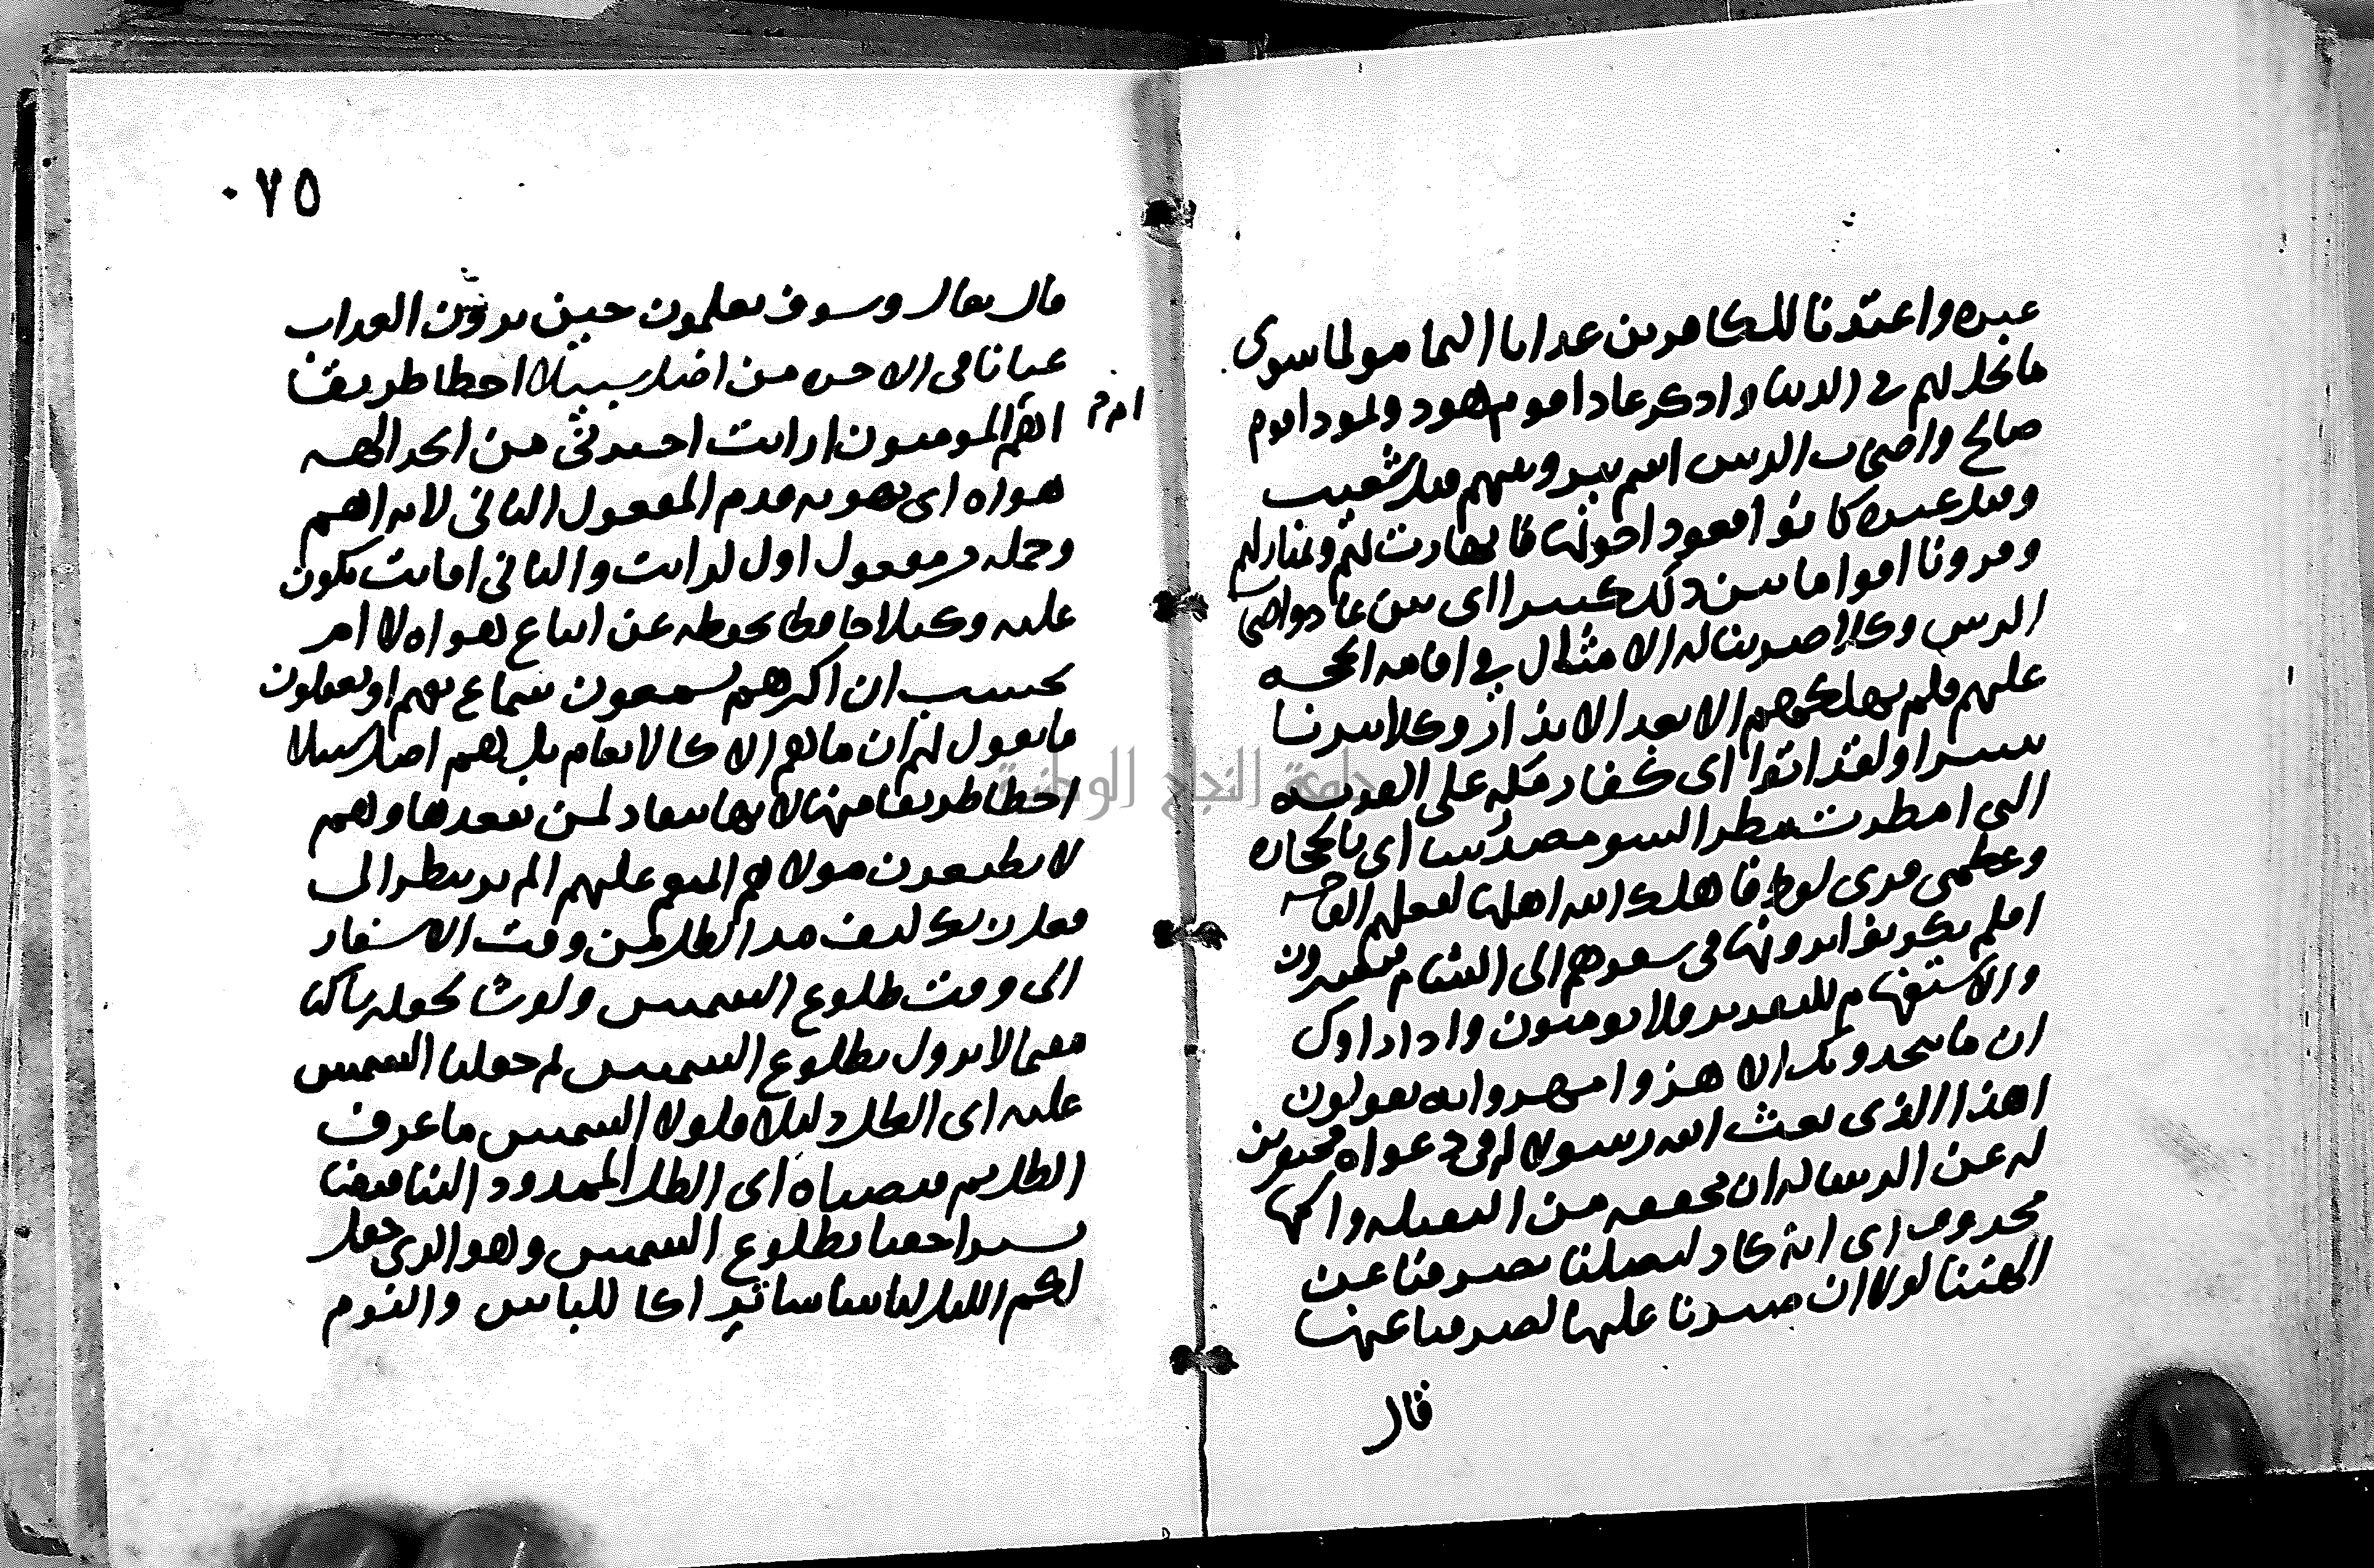 عبره واعتدنا للكافرين عذابا اليما مولما سوى
ما يحل بهم في الدنيا واذكر عادا قوم هود وثمود اقوم
صالح واصحاب الرس اسم بير ونبيهم قيل شعيب
وقيل غيره كانوا قعودا حولها فانهارت بهم وبمنازلهم
وقرونا اقواما بين ذلك كثيرا اى بين عاد واصحاب
الرس وكلا ضربنا له الامثال في اقامه الحجه
عليهم فلم نهلكهم الا بعد الانذار وكلا تبرنا
تتبيرا ولقد اتوا اى كفار مكه على القريه
التى امطرت مطر السو مصدر ساء اى بالحجاره
وعظمى قرى لوط فاهلك الله اهلها لفعلهم الفاحشه
افلم يكونوا يرونها في سفرهم الى الشام فيعتبرون
والاستفهام للتقرير ولا يومنون واذا راوك
ان ما يتخدونك الا هزوا مهزوا به يقولون
اهذا الذى بعث الله رسولا في دعواه محتقرين
له عن الرساله ان محففه من الثقيله واسمها
محدوف اى انه كاد ليضلنا يصرفنا عن
الهتنا لولا ان صبرنا عليها لصرفنا عنها
قال
٠٧٥
قال تعالى وسوف يعلمون حين يرون العذاب
عيانا في الاخره من اضل سبيلا اخطا طريقا
اهم ام المومنون ارايت اخبرني من اتخد الهه
هواه اى مهويه قدم المفعول الثاني لانه اهم
وجمله من مفعول اول لرايت والثاني افانت تكون
عليه وكيلا حافظا تحفظه عن اتباع هواه لا ام
تحسب ان اكثرهم يسمعون سماع تفهم او يعقلون
ما تقول لهم ان ما هم الا كالانعام بل هم اضل سبيلا
اخطا طريقا منها لانها تنقاد لمن يتعهدها وهم
لا يطيعون مولاهم المنعم عليهم الم تر تنظر الى
فعل ربك كيف مد الظل من وقت الاسفار
الى وقت طلوع الشمس ولو شا لجعله ساكنا
مقيما لا يزول بطلوع الشمس ثم جعلنا الشمس
عليه اى الظل دليلا فلولا الشمس ما عرف
الظل ثم قبضناه اى الظل الممدود الينا قبضا
يسيرا خفيا بطلوع الشمس وهو الذى جعل
لكم الليل لباسا ساترا كا للباس والنوم